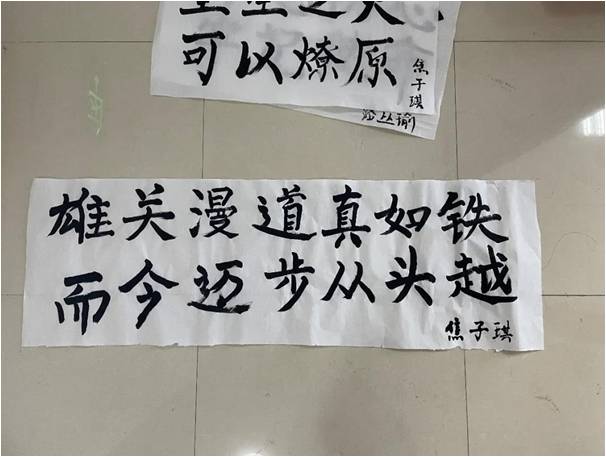 星星之火
可以燎原
焦子琪
丛瑜
雄关漫道真如铁
而今迈步从头越
焦子琪